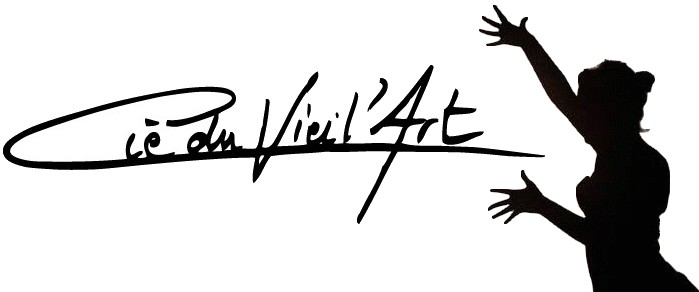 Ciè du Vieil'Art